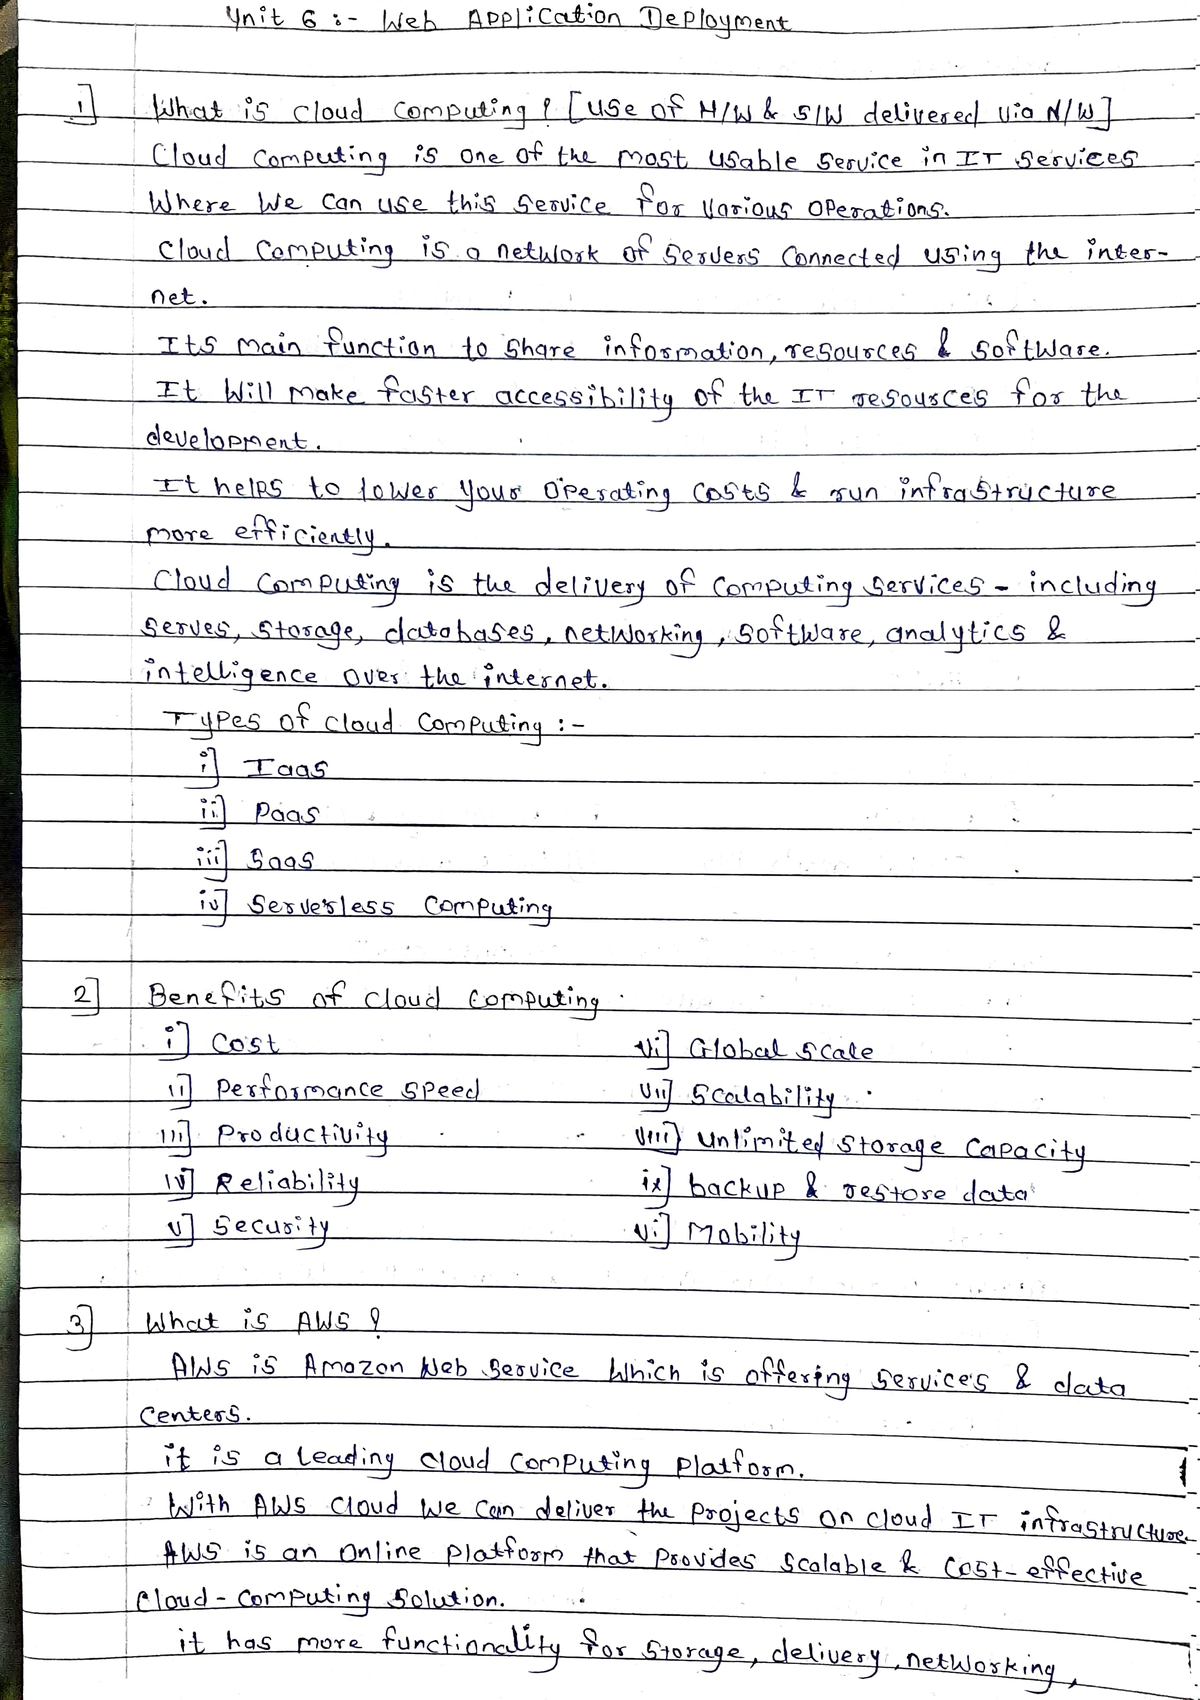 Unit 6 :- Web Application Deployment
1] What is cloud computing ? [use of H/W & S/W delivered via N/W]
Cloud computing is one of the most usable service in IT services
Where we can use this service for various operations.
Cloud computing is a network of servers connected using the inter-
net.
Its main function to share information, resources & software.
It will make faster accessibility of the IT resources for the
development.
It helps to lower your operating costs & run infrastructure
more efficiently.
Cloud computing is the delivery of computing services - including
serves, storage, databases, networking, software, analytics &
intelligence over the internet.
Types of cloud computing :-
i] Iaas
ii] Paas
iii] Saas
iv] Serverless computing
2] Benefits of cloud computing
i] Cost
ii] Performance speed
iii] Productivity
iv] Reliability
v] Security
vi] Global scale
vii] Scalability
viii] unlimited storage capacity
ix] backup & restore data
vi] Mobility
3] What is AWS ?
AWS is Amazon Web Service which is offering services & data
centers.
it is a leading cloud computing platform.
With AWS cloud we can deliver the projects on cloud IT infrastructure.
AWS is an online platform that provides scalable & cost-effective
cloud-computing solution.
it has more functionality for storage, delivery, networking,